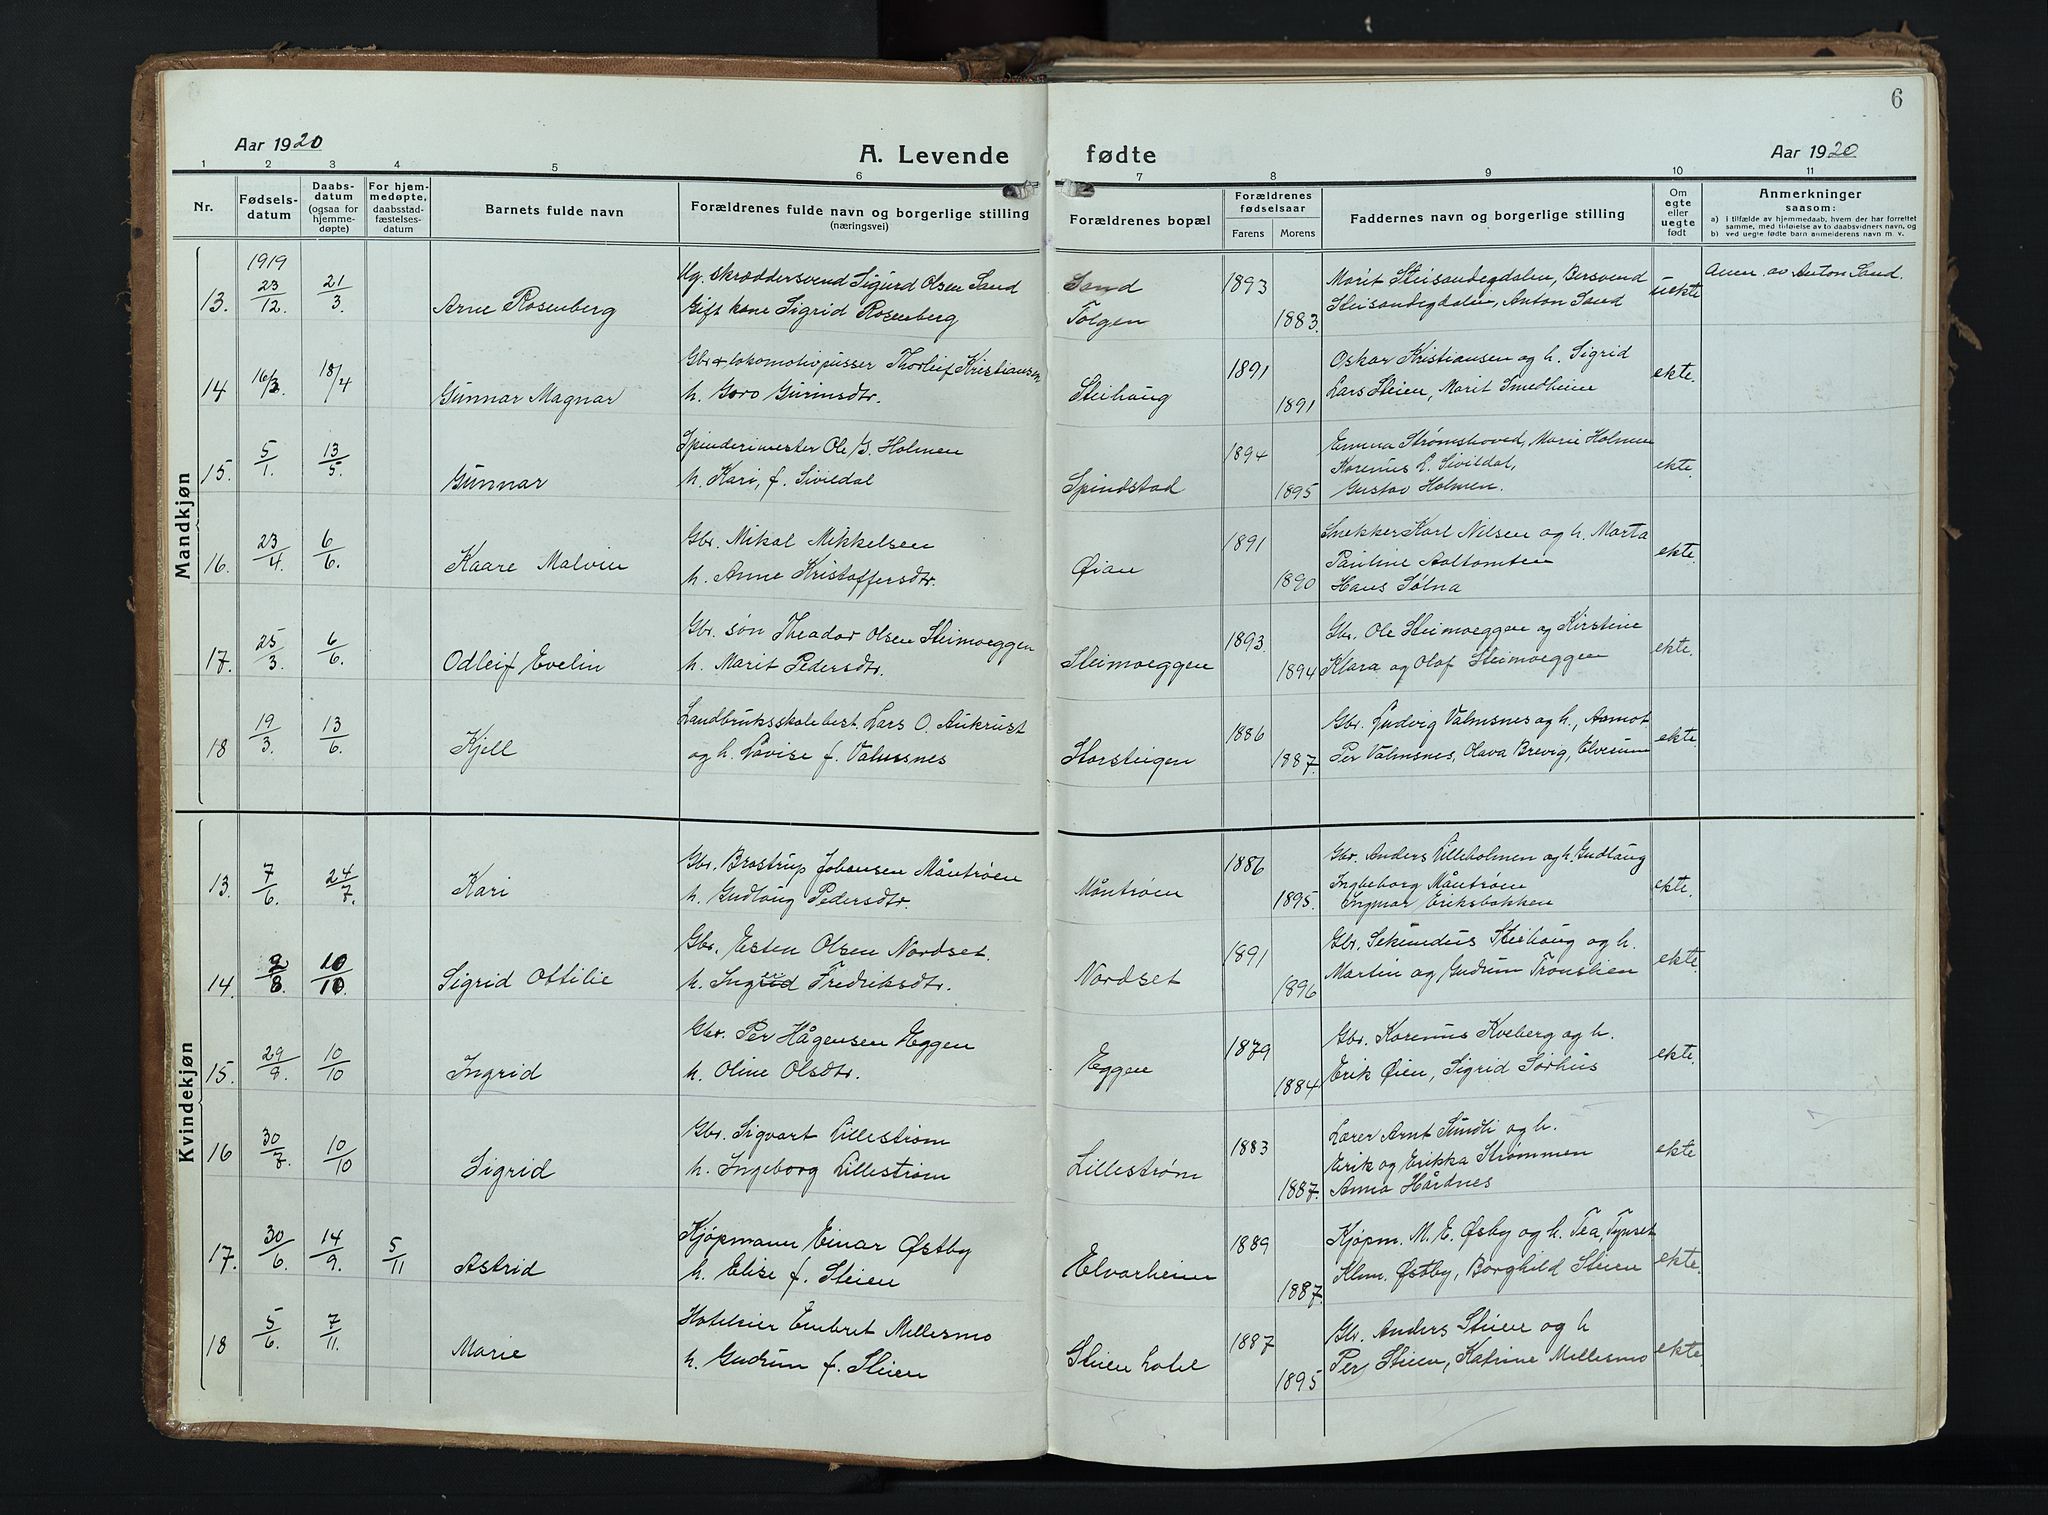 6
Aar 1920
A. Levende fødte
Aar 1920
1 2 3 4 5 6 7 8 9 10 11
Nr.
Fødsels-
datum
Daabs-
datum
(ogsaa for
hjemme-
døpte)
For hjem-
medøpte,
daabsstad-
fæstelses-
datum
Barnets fulde navn
Forældrenes fulde navn og borgerlige stilling
(næringsvei)
Forældrenes bopæl
Forældrenes
fødselsaar
Farens Morens
Faddernes navn og borgerlige stilling
Om
egte
eller
uegte
født
Anmerkninger
saasom:
a) i tilfælde av hjemmedaab, hvem der har forrettet
samme, med tilføielse av to daabsvidners navn, og
b) ved uegte fødte barn anmelderens navn m. v.
Mandkjøn
1919
13. 23/12. 21/3. Arne Rosenberg
Ug. skræddersvend Sigurd Olsen Sand
Gift kone Sigrid Rosenberg
Sand
Tolgen
1893 1883.
Marit Steisandegdalen, Bersvend
Steisandegdalen, Anton Sand
uekte
Anm. av Anton Sand.
14 16/3. 18/4 Gunnar Magnar
Gbr. lokomotivpusser Thorleif Kristiansen
h. Goro Gurinsdtr.
Steihaug
1891 1891
Oskar Kristiansen og h. Sigrid
Lars Steien, Marit Smedheim
ekte.
15. 5/1. 13/5. Gunnar
Spinderimester Ole G. Holmen
h. Kari, f. Sivildal
Spindstad
1894 1895
Emma Strømshoved, Marie Holmen
Korenus L. Sivildal,
Gustav Holmen.
ekte.
16. 23/4. 6/6. Kaare Malvin
Gbr. Mikal Mikkelsen
h. Anne Kristoffersdtr.
Øian
1891 1890
Snekker Karl Nilsen og h. Marta
Pauline Aaltomten
Hans Sølna
ekte.
17. 25/3. 6/6. Odleif Evelin
Gbr. søn Theador Olsen Steimoeggen
h. Marit Pedersdtr.
Steimoeggen
1893. 1894
Gbr. Ole Steimoeggen og Kirstine
Klara og Olaf Steimoeggen
ekte.
18 19/3. 13/6. Kjell
Landbruksskolebest. Lars O. Aukrust
og h. Lovise f. Valmsnes
Storsteigen
1886 1887.
Gbr. Ludvig Valmsnes og h., Aamot
Per Valmsnes, Olava Brevig, Elverum
ekte.
Kvindekjøn
13. 7/6. 24/7. Kari
Gbr. Brostrup Johansen Måntrøen
h. Gudlaug Pedersdtr.
Måntrøen
1886 1895.
Gbr. Anders Lilleholmen og h. Gudlaug
Ingbeborg Måntrøen
Ingmar Eriksbakken
ekte.
14. 2/8. 10/10. Sigrid Ottilie
Gbr. Esten Olsen Nordset.
h. Ingrid Fredriksdtr.
Nordset
1891 1896
Gbr. Sekundus Steihaug og h.
Martin og Gudrun Tronslien
ekte.
15. 29/9. 10/10 Ingrid
Gbr. Per Hågensen Eggen
h. Oline Olsdtr.
Eggen
1879 1884
Gbr. Korenus Kveberg og h.
Erik Øien, Sigrid Sørhus
ekte.
16 30/7. 10/10 Sigrid
Gbr. Sigvart Lillestrøm
h. Ingeborg Lillestrøm
Lillestrøm
1883 1887.
Lærer Arnt Sundli og h.
Erik og Erikka Strømmen
Anna Hårdnes
ekte
17. 30/6. 14/9. 5/11 Astrid
Kjøpmann Einar Østby
h. Elise f. Steien
Elvarheim
1889 1887.
Kjøpm. M. E. Øsby og h. Tea, Tynset
Klem. Østby, Borghild Steien
ekte.
18 5/6. 7/11. Marie
Hoteleier Embret Mellesmo
h. Gudrun f. Steien
Steien hotel
1887 1895
Gbr. Anders Steien og h
Per Steien, Katrine Mellesmo
ekte